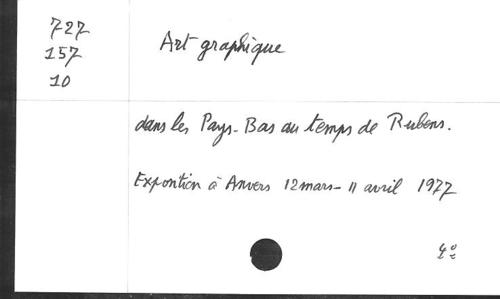 727
157
10
Art graphique
dans les Pays-Bas au temps de Rubens.
Exposition à Anvers 12 mars - 11 avril 1977
4°